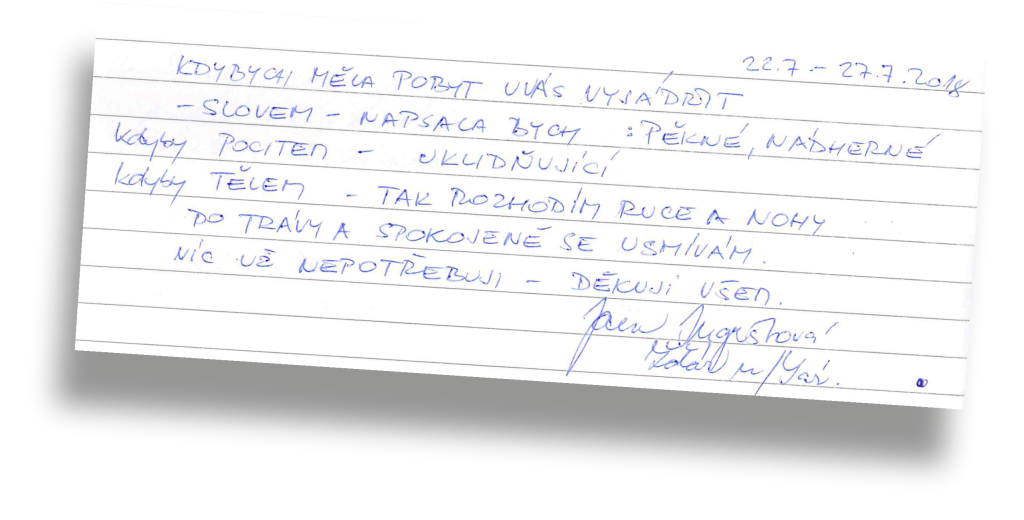 22.7.- 27.7.2018
KDYBYCH MĚLA POBYT U VÁS VYJÁDŘIT
- SLOVEM - NAPSALA BYCH : PĚKNÉ, NÁDHERNÉ
kdyby POCITEM - UKLIDŇUJÍCÍ
kdyby TĚLEM - TAK ROZHODÍM RUCE A NOHY
DO TRÁVY A SPOKOJENĚ SE USMÍVÁM.
NIC UŽ NEPOTŘEBUJI - DĚKUJI VŠEM.